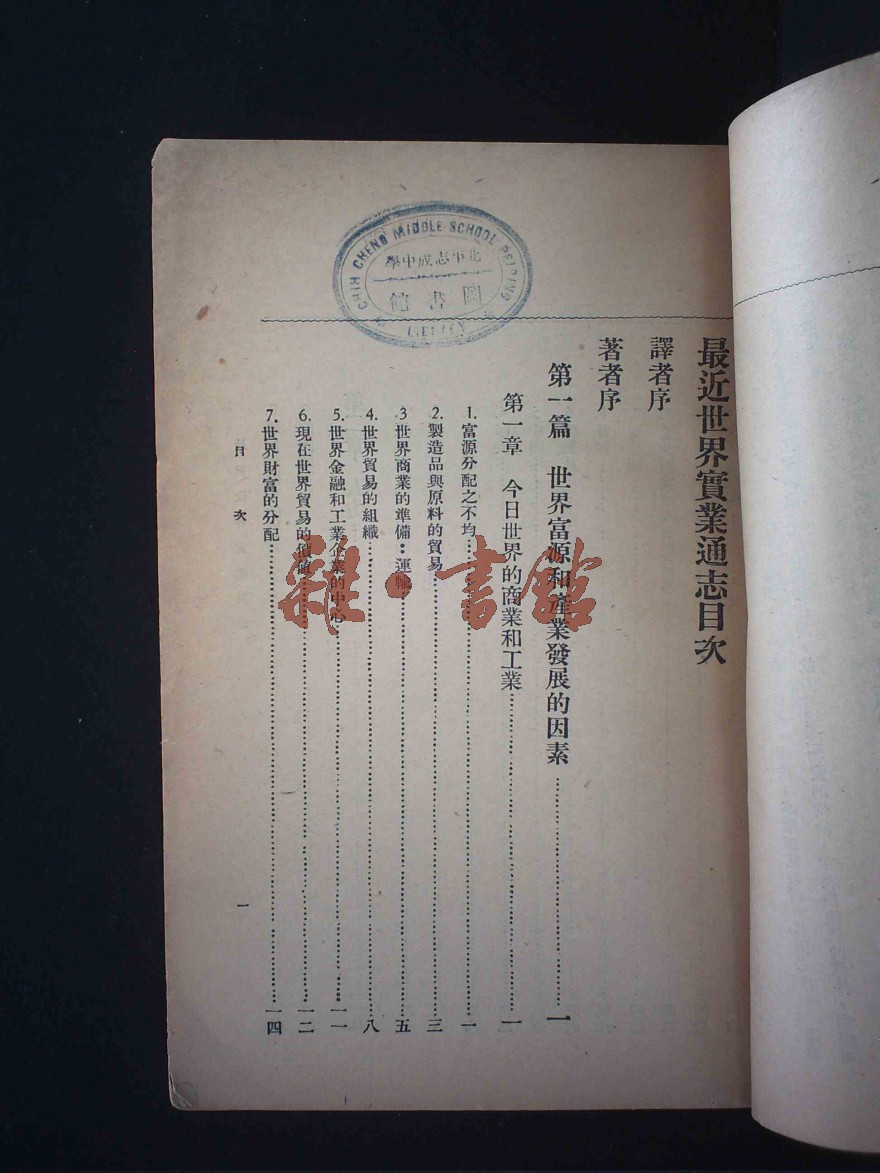 最近世界實業通志目次
譯者序
著者序
第一篇 世界富源和產業發展的因素……一
第一章 今日世界的商業和工業……一
1. 富源分配之不均……一
2. 製造品與原料的貿易……三
3 世界商業的準備：運輸……五
4. 世界貿易的組織……八
5. 世界金融和工業企業的中心……一一
6. 現在世界貿易的價值……一二
7. 世界財富的分配……一四
目次
一
CHIH CHENG MIDDLE SCHOOL PEIPING
北平志成中學
圖書館
雜·書館